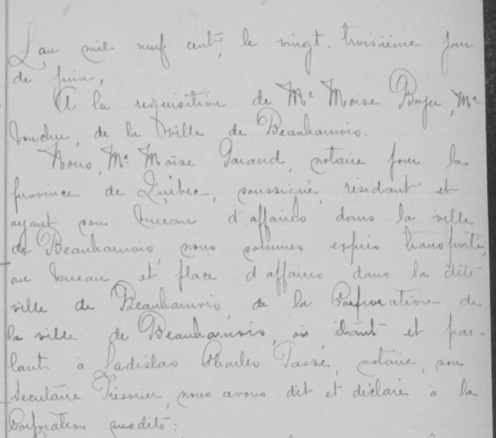 L'an mil neuf cent, le vingt-troisième jour
de juin,
A la requisition de Mr Moïse , Mr
Boucher, de la ville de Beauharnois.
Nous, Mr Moïse Parand, notaire pour la
province de Québec, soussigné, résidant et
ayant son bureau d'affaires dans la ville
de Beauharnois, nous sommes exprès transporté,
au bureau et place d'affaires dans la dite
ville de Beauharnois, de la Corporation de
la ville de Beauharnois, où étant et par-
lant à Ladislas Charles Tassé, notaire, son
Secrétaire Trésorier, nous avons dit et déclaré à la
Corporation susdite: